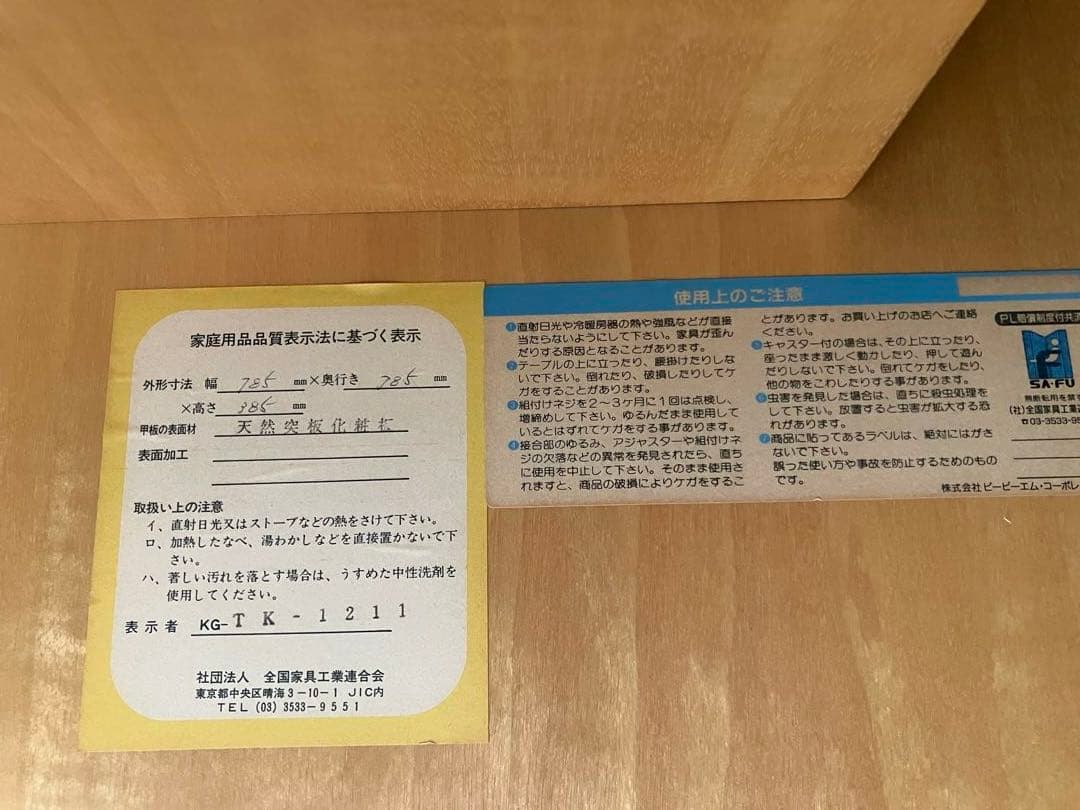 家庭用品品質表示法に基づく表示
外形寸法 幅 785 mm×奥行き 785 mm
×高さ 385 mm
甲板の表面材 天然突板化粧板
表面加工
取扱い上の注意
イ、直射日光又はストーブなどの熱をさけて下さい。
ロ、加熱したなべ、湯わかしなどを直接置かないで下
さい。
ハ、著しい汚れを落とす場合は、うすめた中性洗剤を
使用してください。
表示者 KG-TK-1211
社団法人 全国家具工業連合会
東京都中央区晴海3-10-1 JIC内
TEL (03) 3533-9551
使用上のご注意
①直射日光や冷暖房器の熱や強風などが直接
当たらないようにして下さい。家具が歪ん
だりする原因となることがあります。
②テーブルの上に立ったり、腰掛けたりしな
いで下さい。倒れたり、破損したりしてケ
ガをすることがあります。
③組付けネジを2〜3ケ月に1回は点検し、
増締めして下さい。ゆるんだまま使用して
いるとはずれてケガをする事があります。
④接合部のゆるみ、アジャスターや組付けネ
ジの欠落などの異常を発見されたら、直ち
に使用を中止して下さい。そのまま使用さ
れますと、商品の破損によりケガをするこ
とがあります。お買い上げのお店へご連絡
ください。
⑤キャスター付の場合は、その上に立ったり、
座ったまま激しく動かしたり、押して遊ん
だりしないで下さい。倒れてケガをしたり、
他の物をこわしたりする事があります。
⑥虫害を発見した場合は、直ちに殺虫処理を
して下さい。放置すると虫害が拡大する恐
れがあります。
⑦商品に貼ってあるラベルは、絶対にはがさ
ないで下さい。
誤った使い方や事故を防止するためのもの
です。
株式会社ピーピーエム・コーポレ
PL賠償制度付共済
SA-FU
無断転用を禁
(社)全国家具工業連
☎03-3533-95